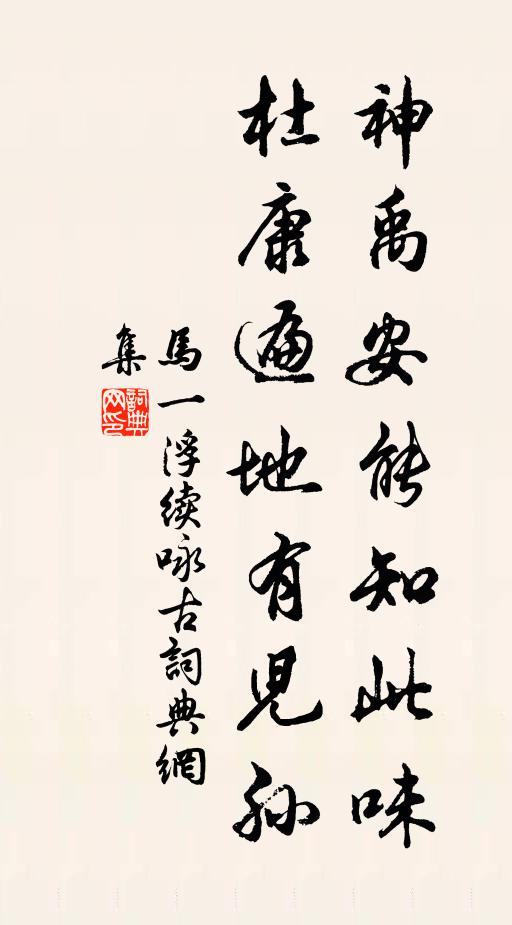 神禹安能知此味
杜康遍地有兒孫
馬一浮续咏古詞典網
集
詞典网印